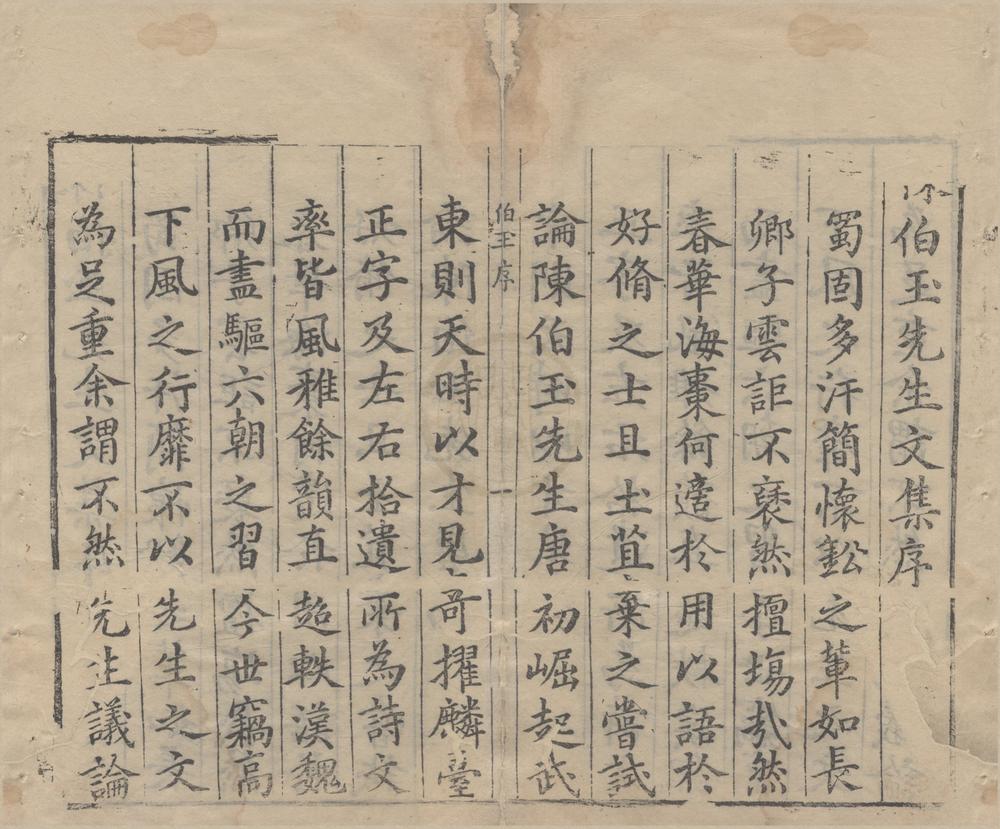 伯玉先生文集序
蜀固多汗簡懷鈆之軰如長
卿子雲詎不襃然擅塲㢤然
春華海棗何適扵用以語扵
好脩之士且土苴棄之嘗試
論陳伯玉先生唐初崛起武
伯玉序
一
東則天時以才見竒擢麟臺
正字及左右拾遺所為詩文
率皆風雅餘韻直超軼漢魏
而盡驅六朝之習今世竊高
下風之行靡不以先生之文
為足重余謂不然先生議論